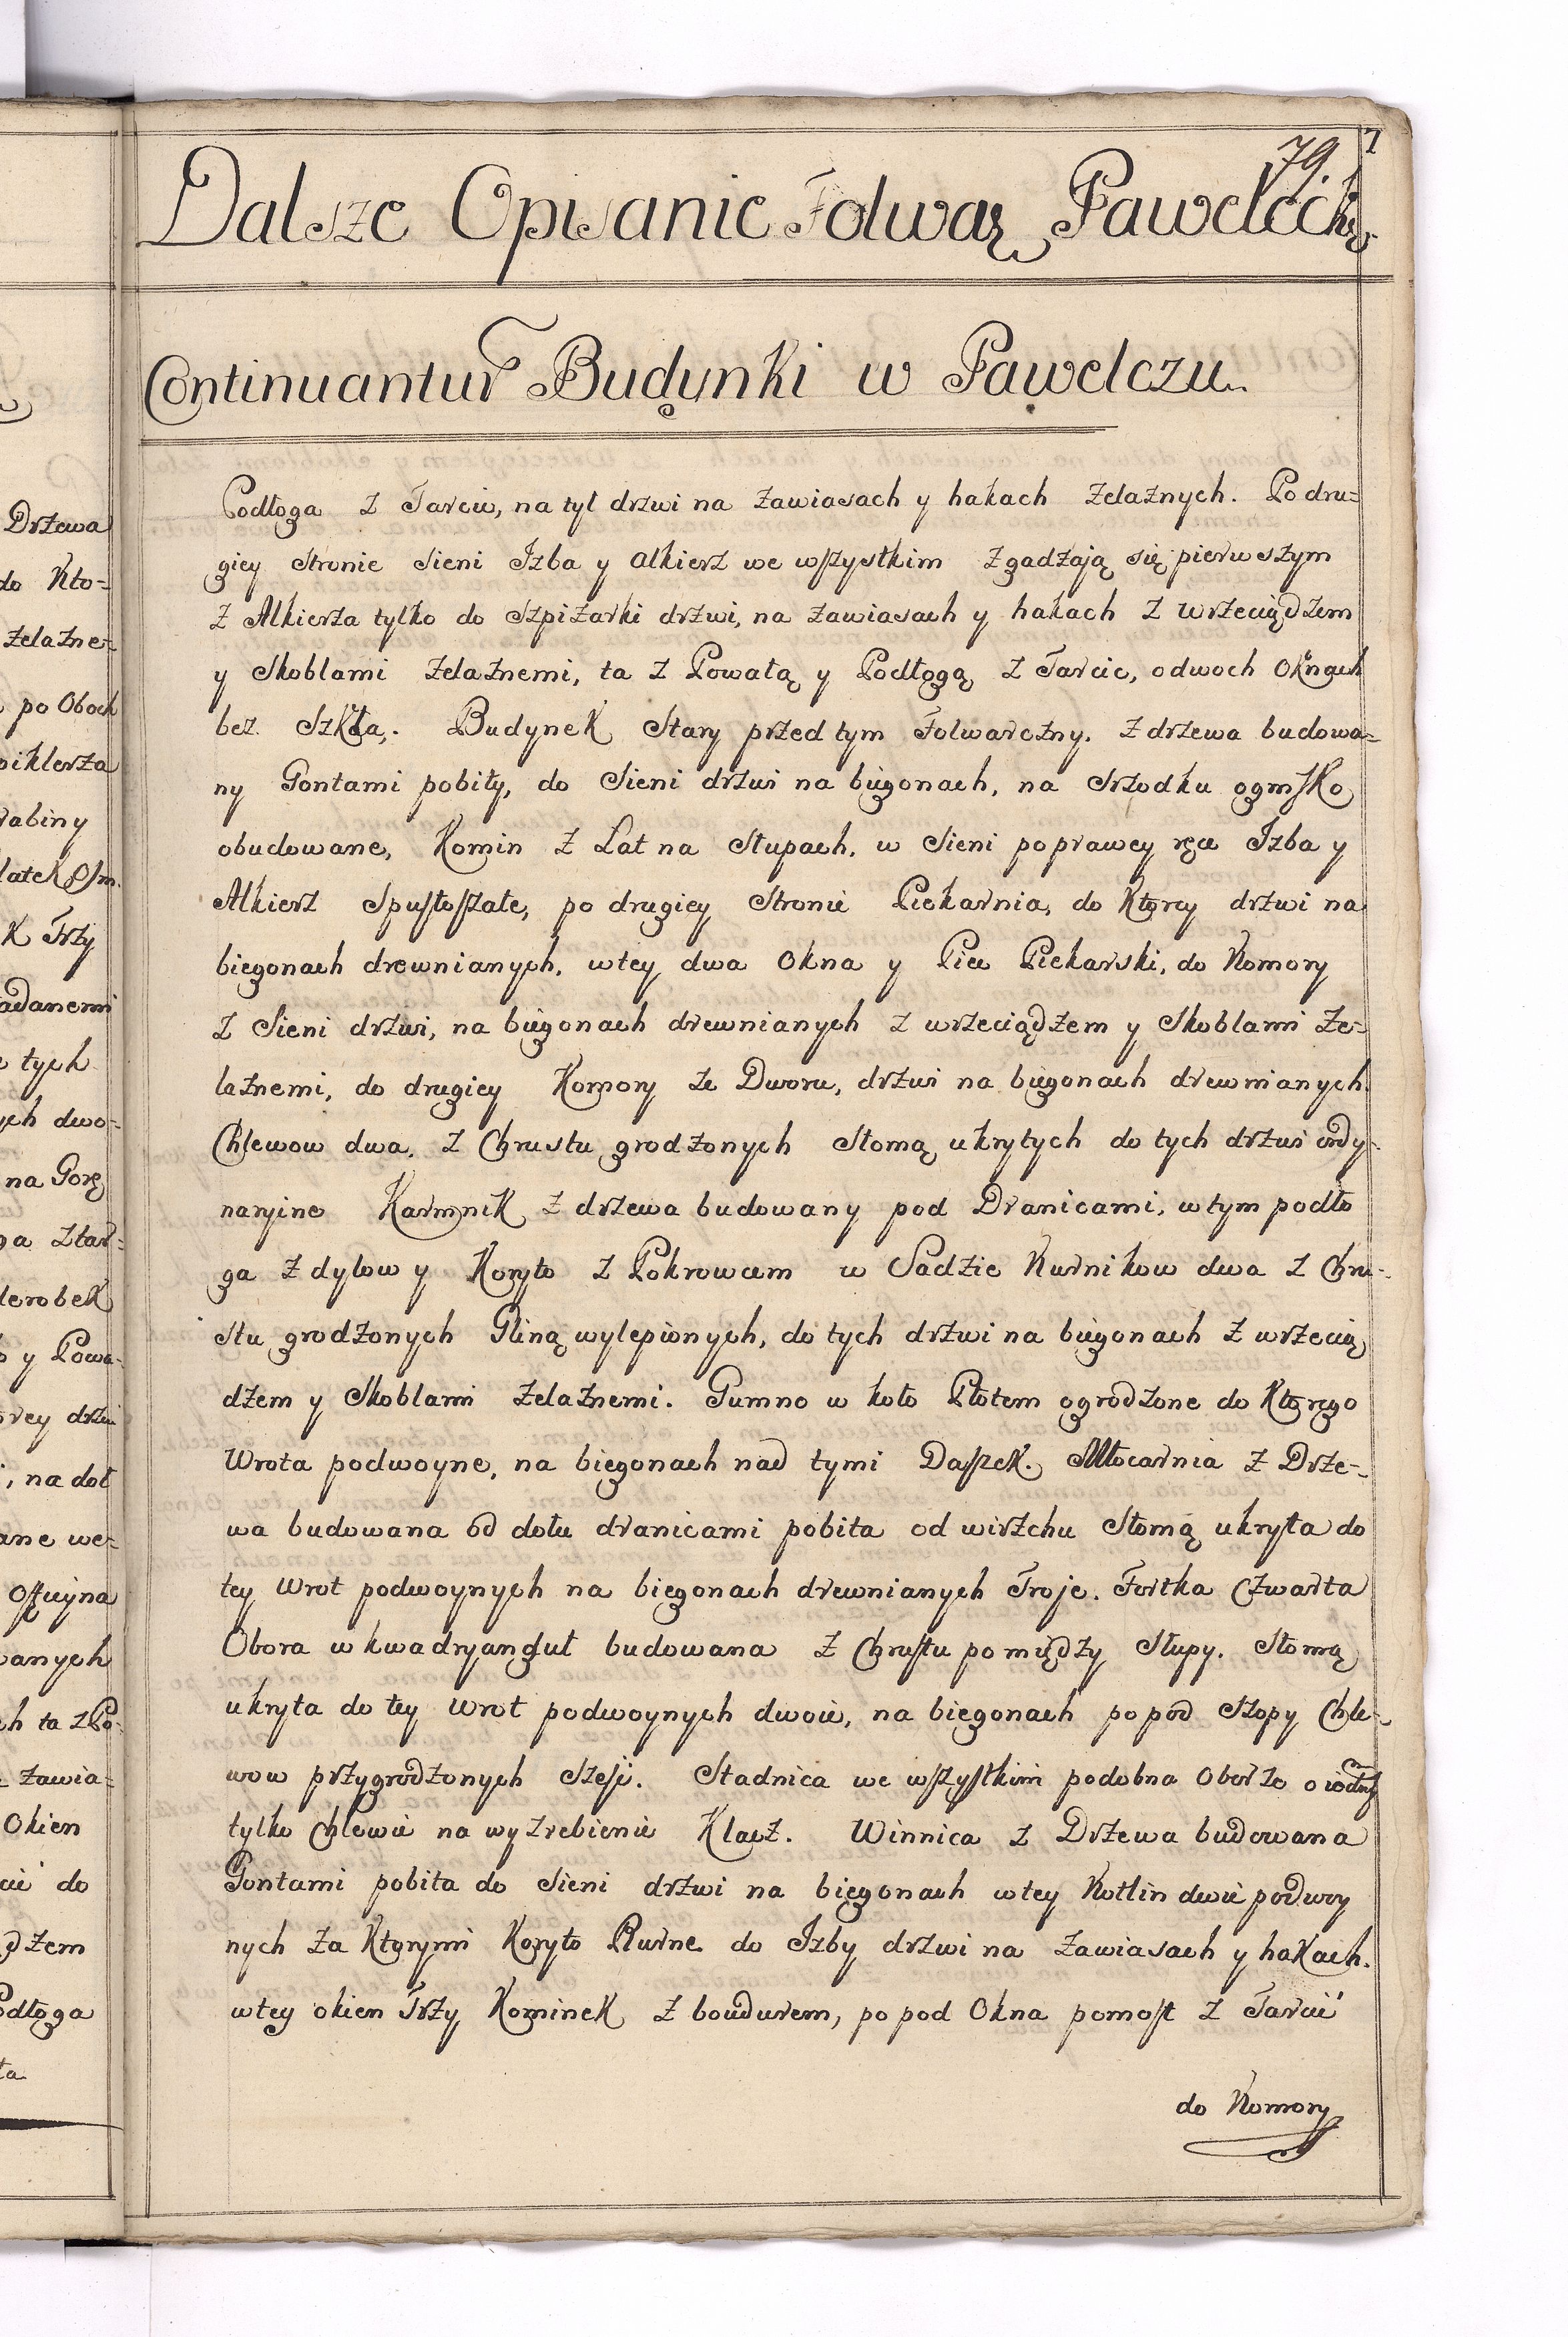 79.
7
Dalsze Opisanie Folwar. Pawelcch.
Continuantur Budynki w Pawelczu.
Podłoga z Tarcic, na tył drzwi na zawiasach y hakach żelaznych. Po dru=
giey Stronie Sieni Izba y Alkierz we wszystkim zgadzaią się pierwszym
z Alkierza tylko do Szpiżarki drzwi, na zawiasach y hakach z wrzeciądzem
y Skoblami żelaznemi, ta z Powałą y Podłogą z Tarcic, o dwoch Oknach
bez Szkła. Budynek Stary przed tym Folwarczny. z drzewa budowa=
ny Gontami pobity, do Sieni drzwi na biegonach, na Srzodku ognisko
obudowane, Komin z Lat na Słupach. w Sieni po prawey ręce Izba y
Alkierz Spustoszałe, po drugiey Stronie Piekarnia, do Ktorey drzwi na
biegonach drewnianych. w tey dwa Okna y Piec Piekarski, do Komory
z Sieni drzwi, na biegonach drewnianych z wrzeciądzem y Skoblami że=
laznemi, do drugiey Komory ze Dworu, drzwi na biegonach drewnianych.
Chlewow dwa. z Chrustu grodzonych Słomą ukrytych do tych drzwi ordy=
naryine Karmnik z drzewa budowany pod Dranicami, w tym podło
ga z dylow y Koryto z Pokrowcem w Sadzie Kurnikow dwa z Chru=
stu grodzonych Gliną wylepionych, do tych drzwi na biegonach z wrzecią
dzem y Skoblami żelaznemi. Gumno w koło Płotem ogrodzone do Ktorego
Wrota podwoyne, na biegonach nad tymi Daszek. Młocarnia z Drze=
wa budowana od dołu dranicami pobita od wirzchu Słomą ukryta do
tey Wrot podwoynych na biegonach drewnianych Troje. Fortka Czwarta
Obora w kwadryanguł budowana z Chrustu pomiędzy Słupy. Słomą
ukryta do tey Wrot podwoynych dwoie, na biegonach po pod Szopy Chle=
wow przygrodzonych Sześć. Stadnica we wszystkim podobna Oborze o
tylko Chlewie na wyzrebienie Klacz. Winnica z Drzewa budowana
Gontami pobita do Sieni drzwi na biegonach w tey Kotlin dwie podwoy
nych za Ktorymi Koryto Rurne do Izby drzwi na zawiasach y hakach.
w tey okien Trzy Kominek z boudurem, po pod Okna pomost z Tarcic
do Komory
Drzewa
do Kło=
żelazne=
po Oboch
piklerza
rabiny
latek Osm.
k Trzy
adanemi
tych
ych dwo=
na Gorę
ga z tar=
derobek
y Powa=
orey drzwi
, na doł
ane we=
Officyna
wanych
ch ta z Po=
zawia=
Okien
cic do
dzem
odłoga
ta